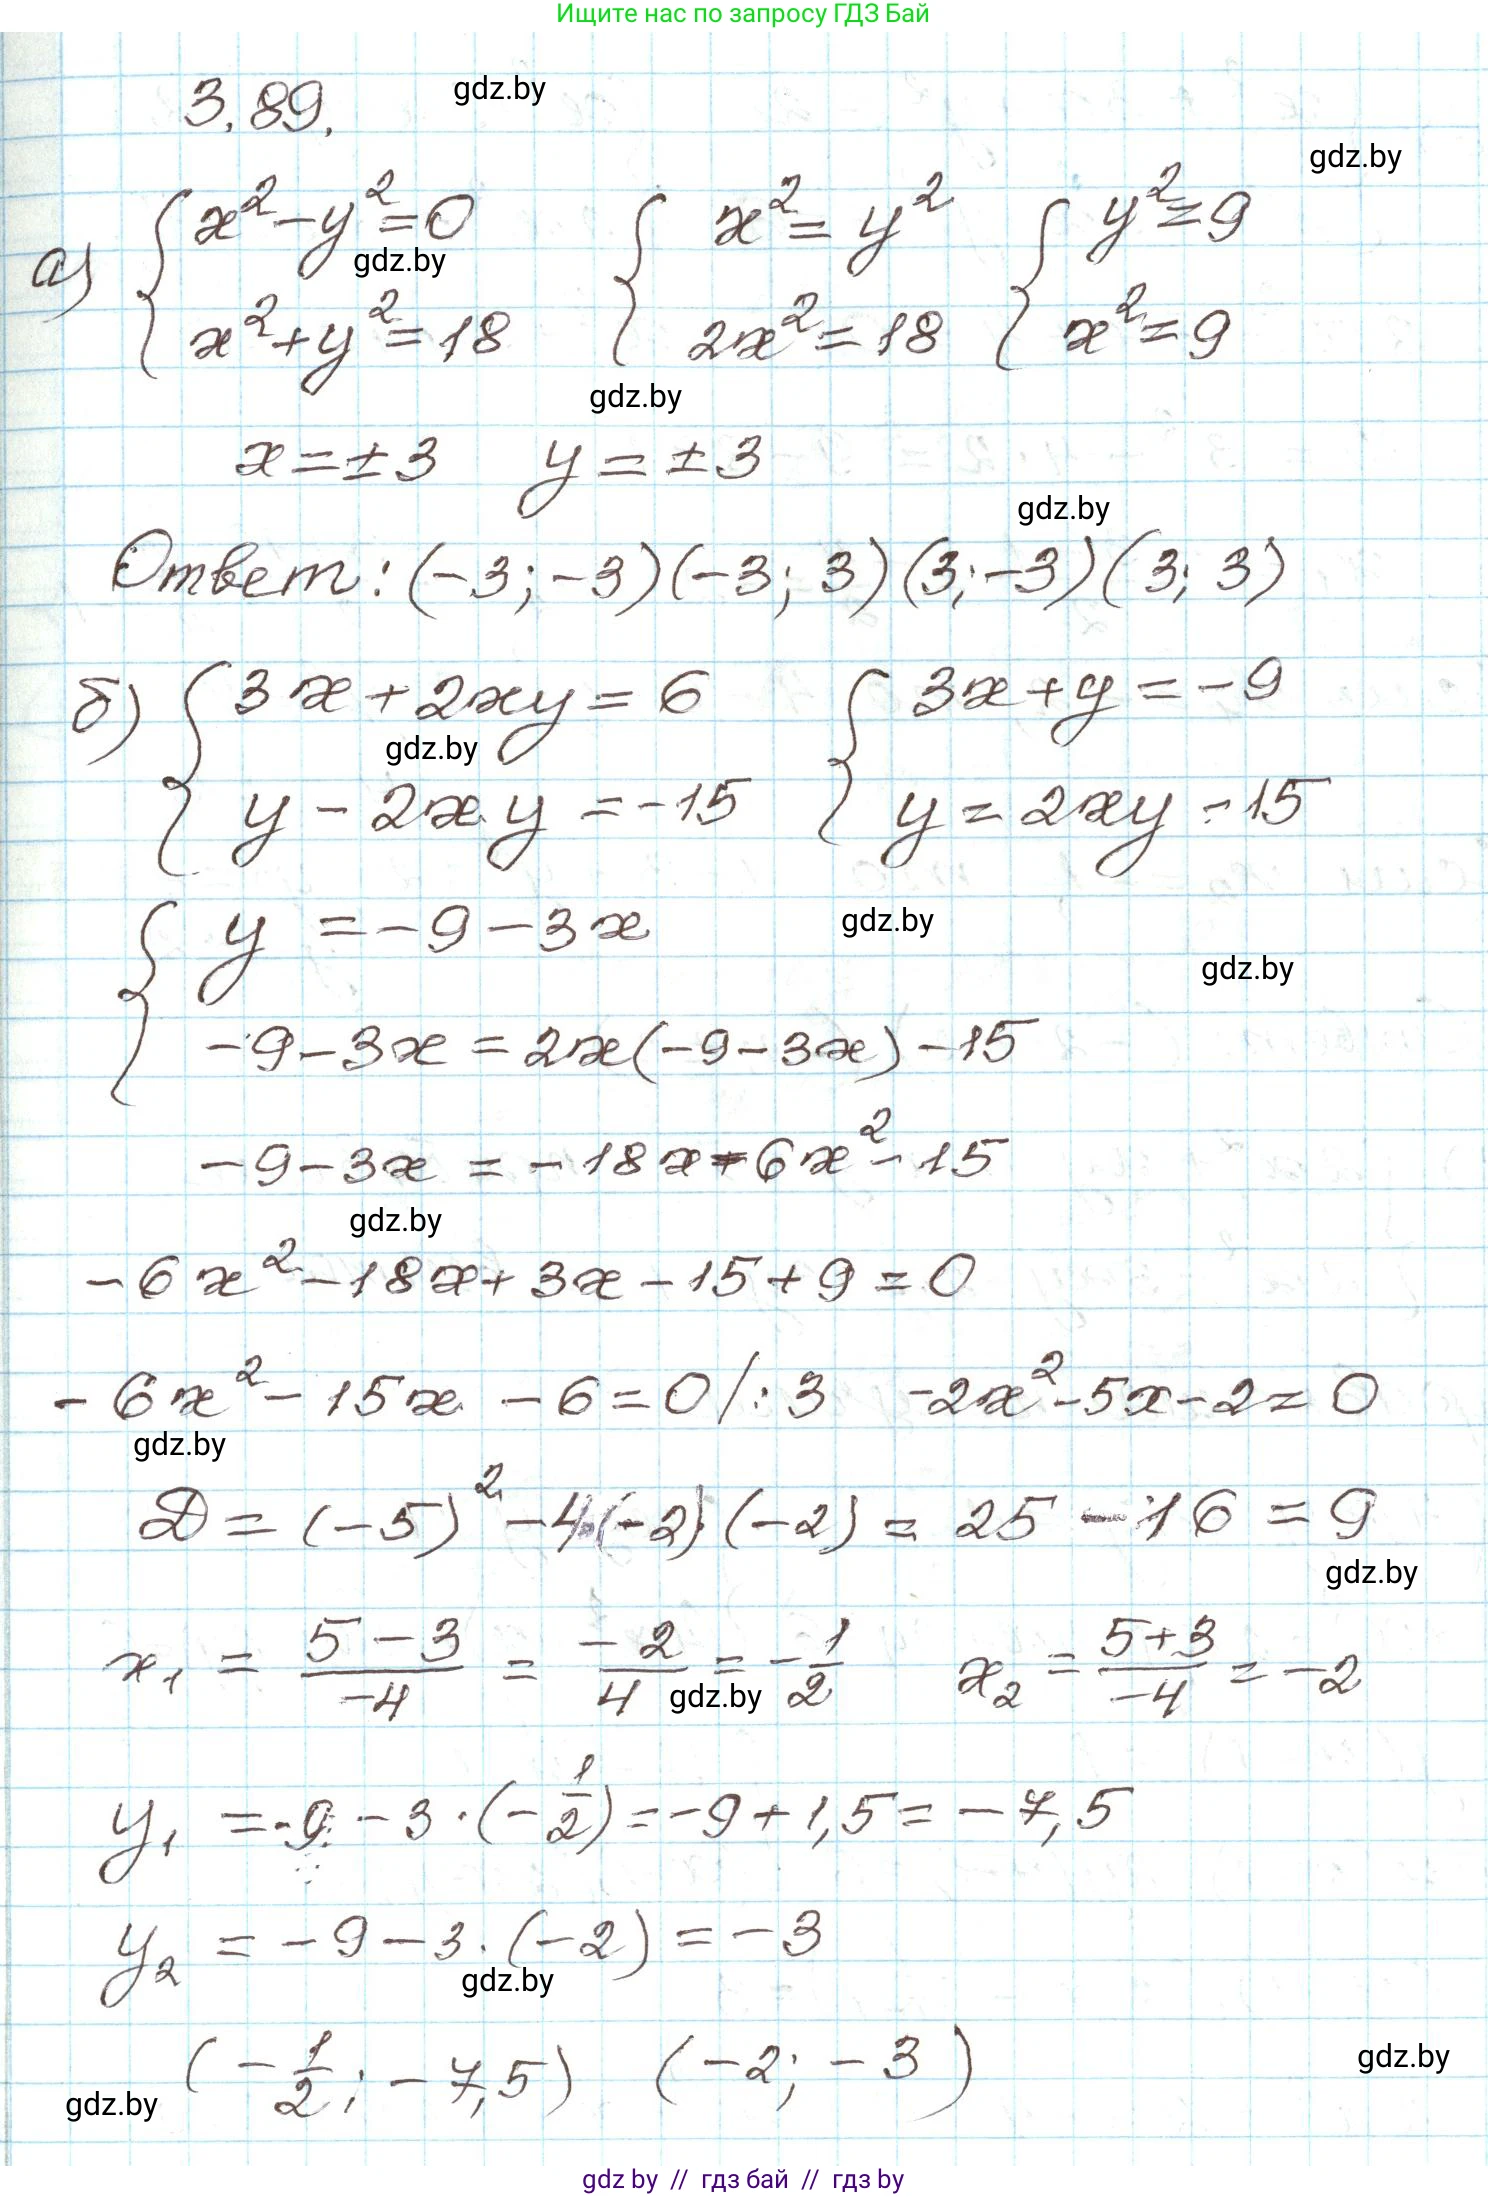 Ищите нас по запросу ГДЗ Бай
3.89. gdz.by
gdz.by
а) { x² - y² = 0 { x² = y² { y² = 9
gdz.by
x² + y² = 18 2x² = 18 x² = 9
gdz.by
x = ±3 y = ±3
gdz.by
Ответ: (-3; -3) (-3; 3) (3; -3) (3; 3)
б) { 3x + 2xy = 6 { 3x + y = -9
gdz.by
y - 2xy = -15 y = 2xy - 15
{ y = -9 - 3x gdz.by
gdz.by
-9 - 3x = 2x(-9 - 3x) - 15
-9 - 3x = -18x - 6x² - 15
gdz.by
-6x² - 18x + 3x - 15 + 9 = 0
-6x² - 15x - 6 = 0 /: 3 -2x² - 5x - 2 = 0
gdz.by
D = (-5)² - 4·(-2)·(-2) = 25 - 16 = 9
gdz.by
x₁ = (5 - 3)/(-4) = -2/4 = -1/2 x₂ = (5+3)/(-4) = -2
gdz.by
y₁ = -9 - 3·(-1/2) = -9 + 1,5 = -7,5
y₂ = -9 - 3·(-2) = -3
gdz.by
(-1/2; -7,5) (-2; -3)
gdz.by
gdz.by
gdz by // гдз бай // гдз by